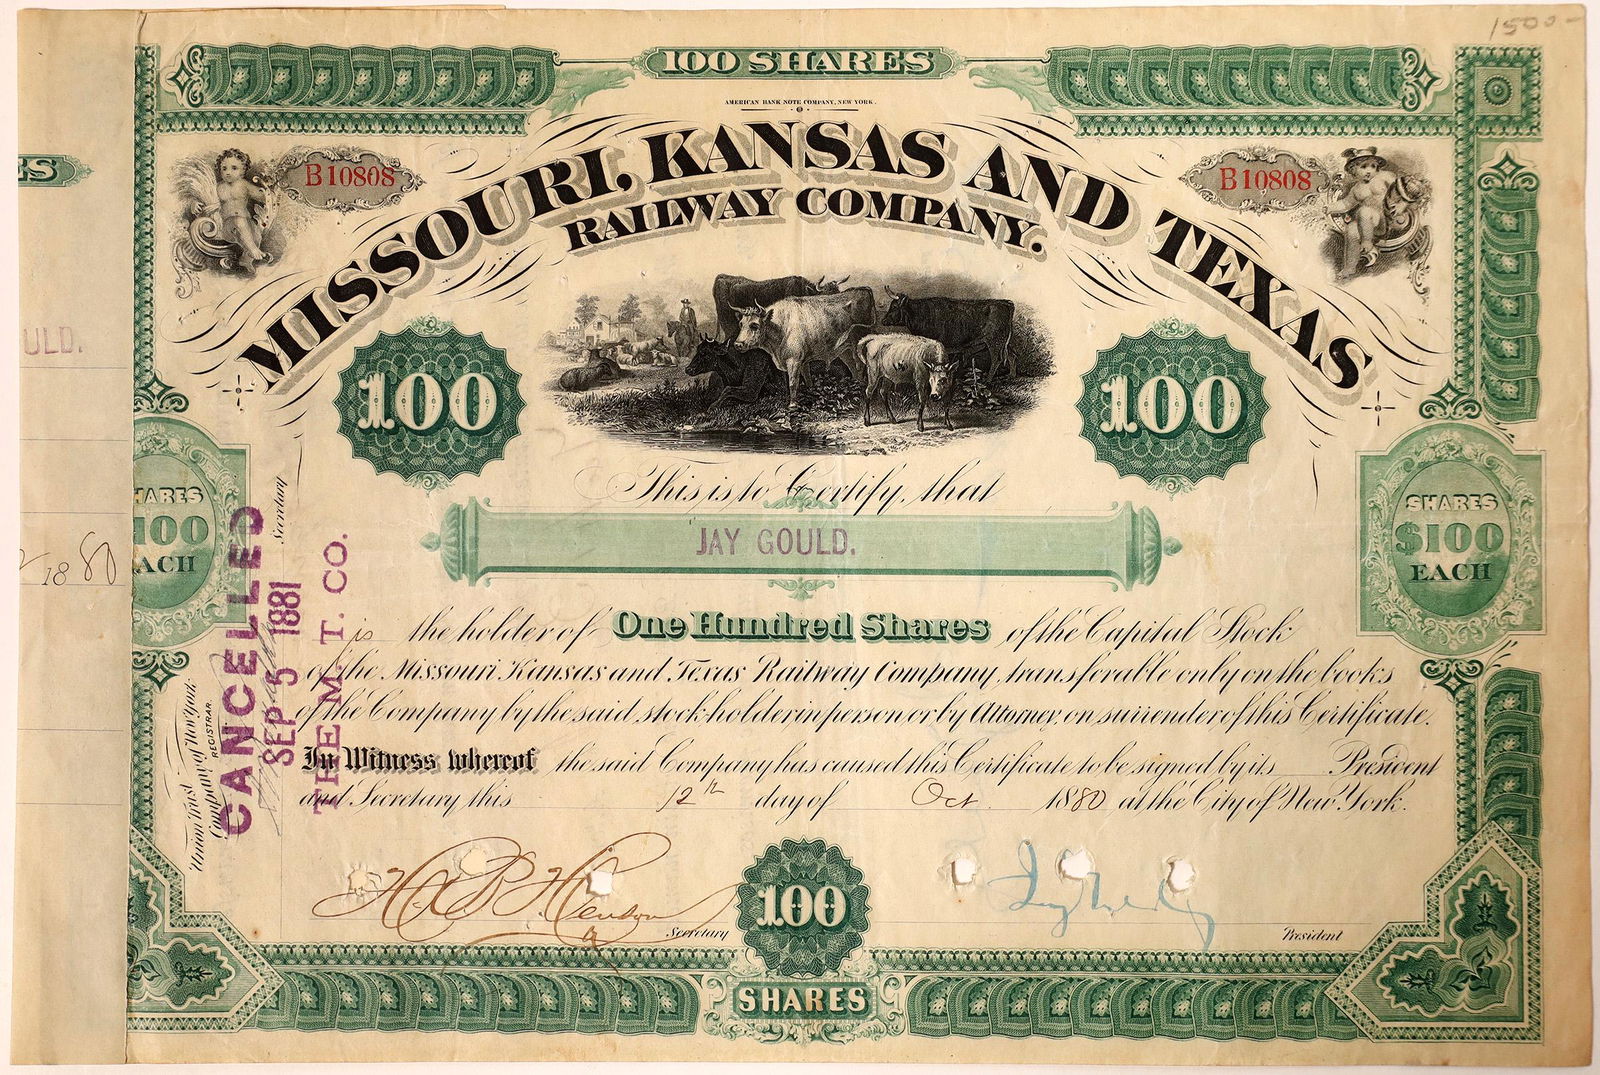 1500-
100 SHARES
AMERICAN BANK NOTE COMPANY, NEW YORK.
B10808
B10808
MISSOURI, KANSAS AND TEXAS
RAILWAY COMPANY.
100
100
This is to Certify, that
JAY GOULD.
ULD.
ES
SHARES
$100
EACH
HARES
100
ACH
1880
is the holder of One Hundred Shares of the Capital Stock
of the Missouri Kansas and Texas Railway Company, transferable only on the books
of the Company by the said stockholder in person or by Attorney, on surrender of this Certificate.
In Witness whereof the said Company has caused this Certificate to be signed by its President
and Secretary this 12th day of Oct. 1880 at the City of New York.
Union Trust
Company of New York
REGISTRAR.
Secretary
CANCELLED
SEP 5 1881
THE M. T. CO.
H. B. Henson
Secretary
100
SHARES
Jay
President